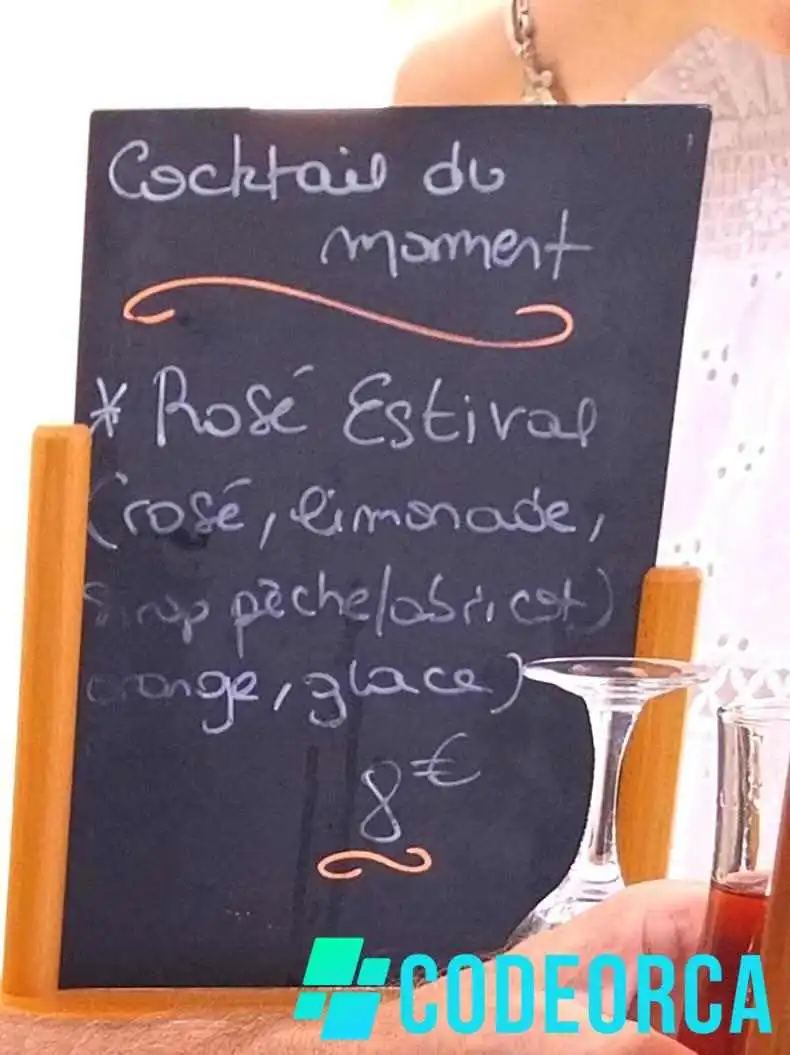 Cocktail du
moment
* Rosé Estival
(rosé, limonade,
Sirop pêche/abricot)
orange, glace)
8€
CODEORCA